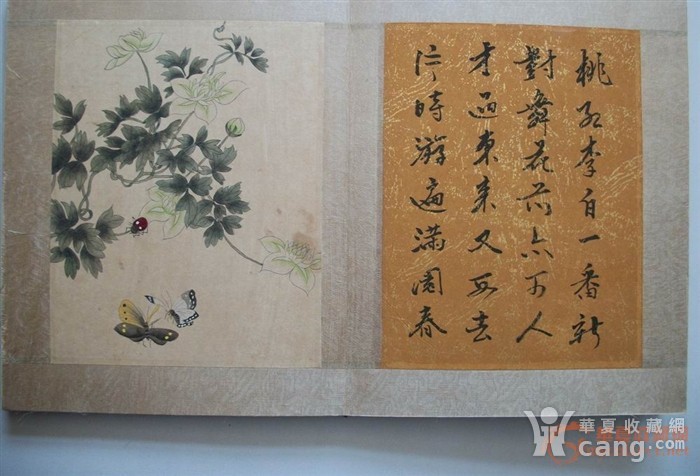 桃紅李白一番新
對舞花前亦可人
才過東來又西去
片時游遍滿園春
華夏收藏網
cang.com